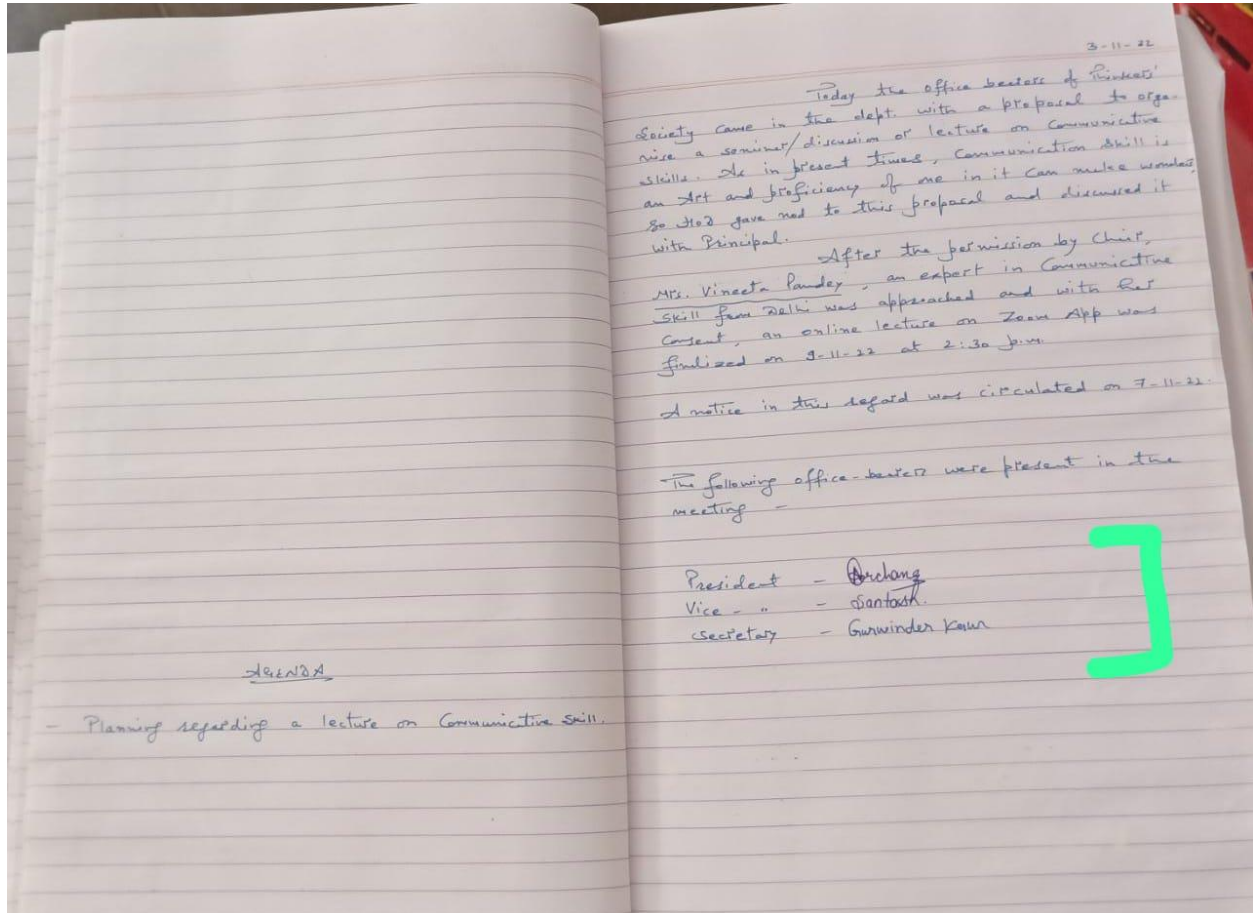 AGENDA
- Planning regarding a lecture on Communicative Skill.
3-11-22
Today the office bearers of Thinkers'
Society came in the dept. with a proposal to orga-
nise a seminar/discussion or lecture on Communicative
skills. As in present times, Communication Skill is
an Art and proficiency of one in it can make wonders,
So HoD gave nod to this proposal and discussed it
with Principal.
After the permission by Chair,
Mrs. Vineeta Pandey, an expert in Communicative
Skill from Delhi was approached and with her
Consent, an online lecture on Zoom App was
finalized on 9-11-22 at 2:30 p.m.
A notice in this regard was circulated on 7-11-22.
The following office-bearers were present in the
meeting -
President - Archana
Vice - " - Santosh.
Secretary - Gurwinder Kaur